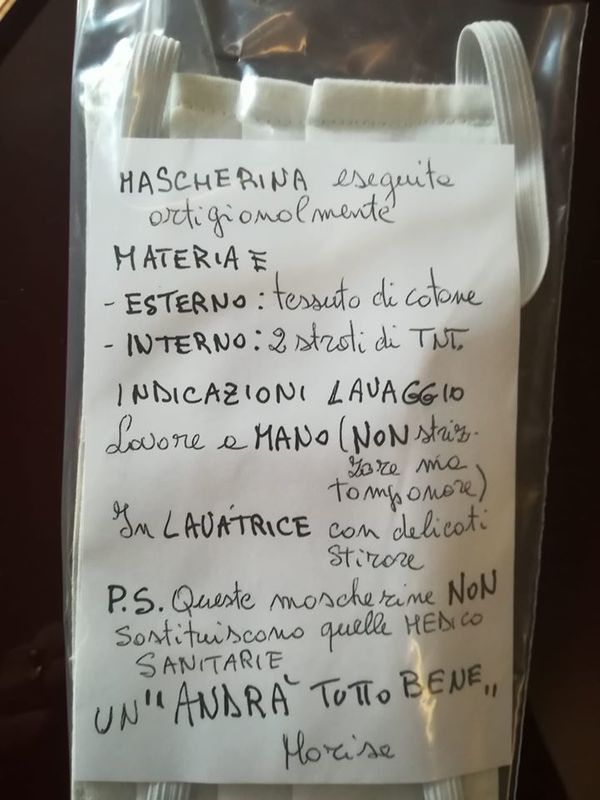 MASCHERINA eseguita
artigianalmente
MATERIAE
- ESTERNO: tessuto di cotone
- INTERNO: 2 strati di TNT.
INDICAZIONI LAVAGGIO
Lavare a MANO (NON striz-
zare ma
tamponare)
In LAVATRICE con delicati
stirare
P.S. Queste mascherine NON
sostituiscono quelle MEDICO
SANITARIE
UN "ANDRÀ TUTTO BENE„
Marisa